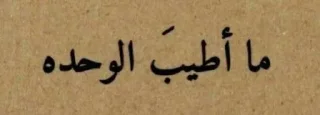 ما أطيبَ الوحده